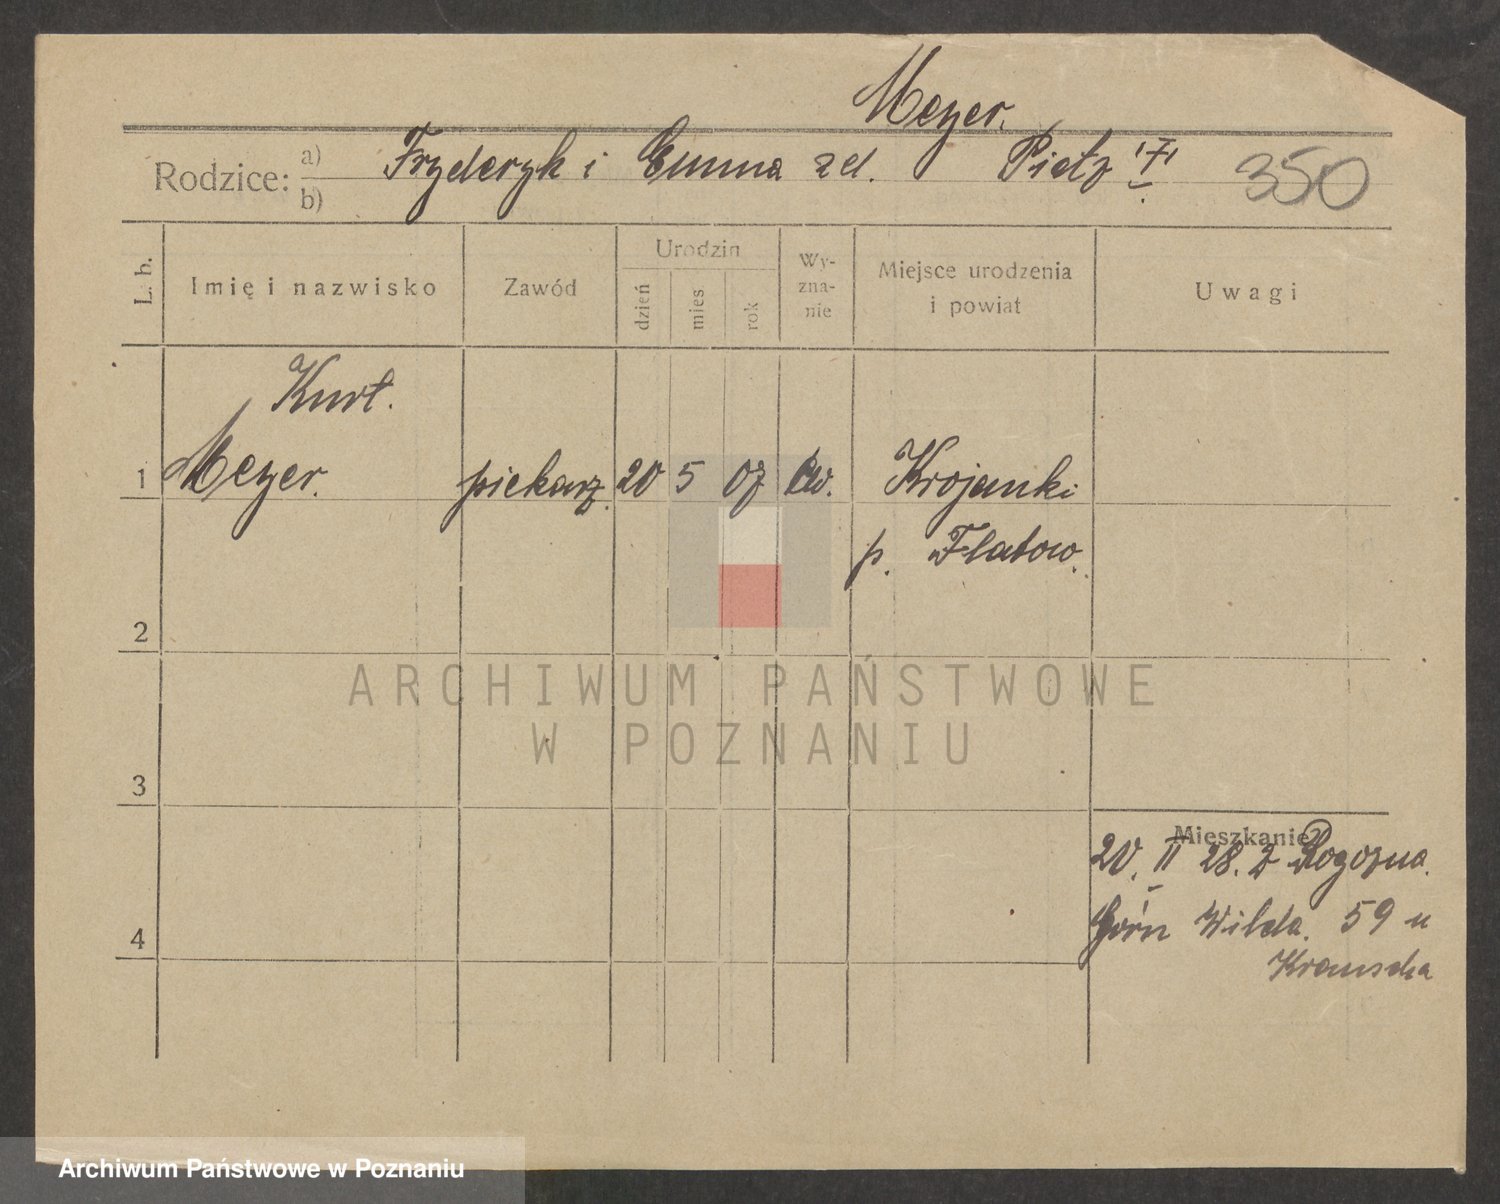 Meyer.
Rodzice: a) Fryderyk i Emma z d. Pietz 350
b)
L. b. Imię i nazwisko Zawód Urodzin dzień mies rok Wy-zna-nie Miejsce urodzenia i powiat Uwagi
Kurt.
1 Meyer. piekarz. 20 5 07 ew. Krojanki
p. Flatow.
2
ARCHIWUM PAŃSTWOWE
W POZNANIU
3
Mieszkanie
20. II 28. z Rogozna.
Górn Wilda. 59 u
4
Krauscha
Archiwum Państwowe w Poznaniu